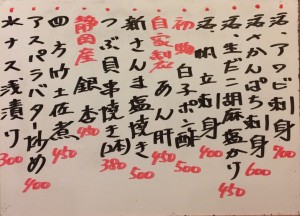 活、アワビ刺身 700
活、さかんぱち刺身 600
活、生だこ胡麻塩かり 450
活、帆立刺身 400
初物 白子ポン酢 500
自家製 あん肝
新さんま塩焼き 500
つぶ貝串焼き(2本) 380
静岡産 銀杏 450
四方竹土佐煮 450
アスパラバター炒め 400
水ナス浅漬り 300